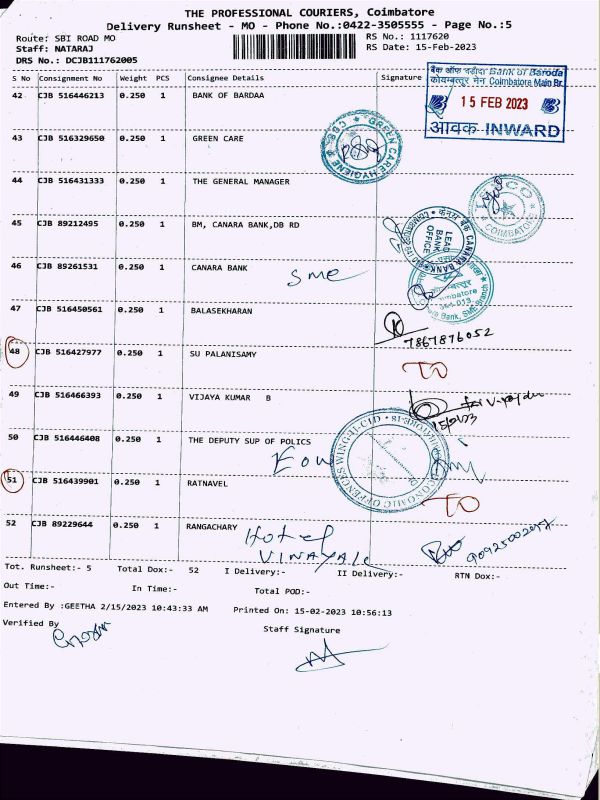 THE PROFESSIONAL COURIERS, Coimbatore
Delivery Runsheet - MO - Phone No.:0422-3505555 - Page No.:5
Route: SBI ROAD MO RS No.: 1117620
Staff: NATARAJ RS Date: 15-Feb-2023
DRS No.: DCJB111762005
S No Consignment No Weight PCS Consignee Details Signature
बैंक ऑफ बड़ौदा Bank of Baroda
कोयम्बत्तूर मेन Coimbatore Main Br.
15 FEB 2023
आवक INWARD
42 CJB 516446213 0.250 1 BANK OF BARDAA
43 CJB 516329650 0.250 1 GREEN CARE
GREEN CARE HYGIENE CBE
44 CJB 516431333 0.250 1 THE GENERAL MANAGER
COIMBATORE
45 CJB 89212495 0.250 1 BM, CANARA BANK,DB RD
केनरा बैंक CANARA BANK
LEAD BANK OFFICE
46 CJB 89261531 0.250 1 CANARA BANK SME
47 CJB 516450561 0.250 1 BALASEKHARAN
7867876052
48 CJB 516427977 0.250 1 SU PALANISAMY TO
49 CJB 516466393 0.250 1 VIJAYA KUMAR B
50 CJB 516446408 0.250 1 THE DEPUTY SUP OF POLICS
ECONOMIC OFFENCES WING-II-CID
EOW
51 CJB 516439901 0.250 1 RATNAVEL TO
52 CJB 89229644 0.250 1 RANGACHARY Hotel
VINAYAK
Tot. Runsheet:- 5 Total Dox:- 52 I Delivery:- II Delivery:- RTN Dox:-
Out Time:- In Time:- Total POD:-
Entered By :GEETHA 2/15/2023 10:43:33 AM Printed On: 15-02-2023 10:56:13
Verified By Staff Signature